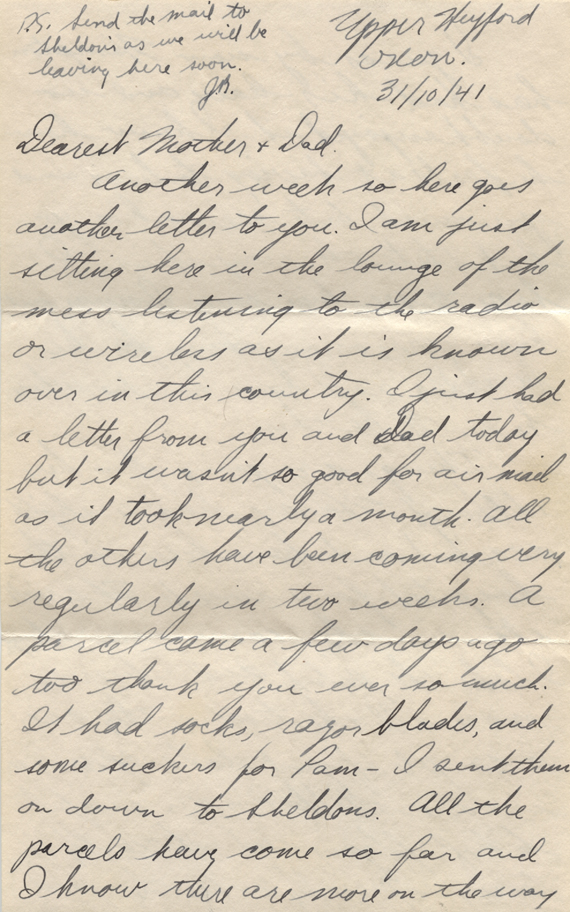 P.S. Send the mail to
Sheldons as we will be
leaving here soon.
Upper Heyford
Oxon.
31/10/41
Dearest Mother + Dad.
Another week so here goes
another letter to you. I am just
sitting here in the lounge of the
mess listening to the radio
or wireless as it is known
over in this country. I just had
a letter from you and Dad today
but it wasn't so good for air mail
as it took nearly a month. All
the others have been coming very
regularly in two weeks. A
parcel came a few days ago
too thank you ever so much.
It had socks, razor blades, and
some suckers for Pam - I sent them
on down to Sheldons. All the
parcels have come so far and
I know there are more on the way